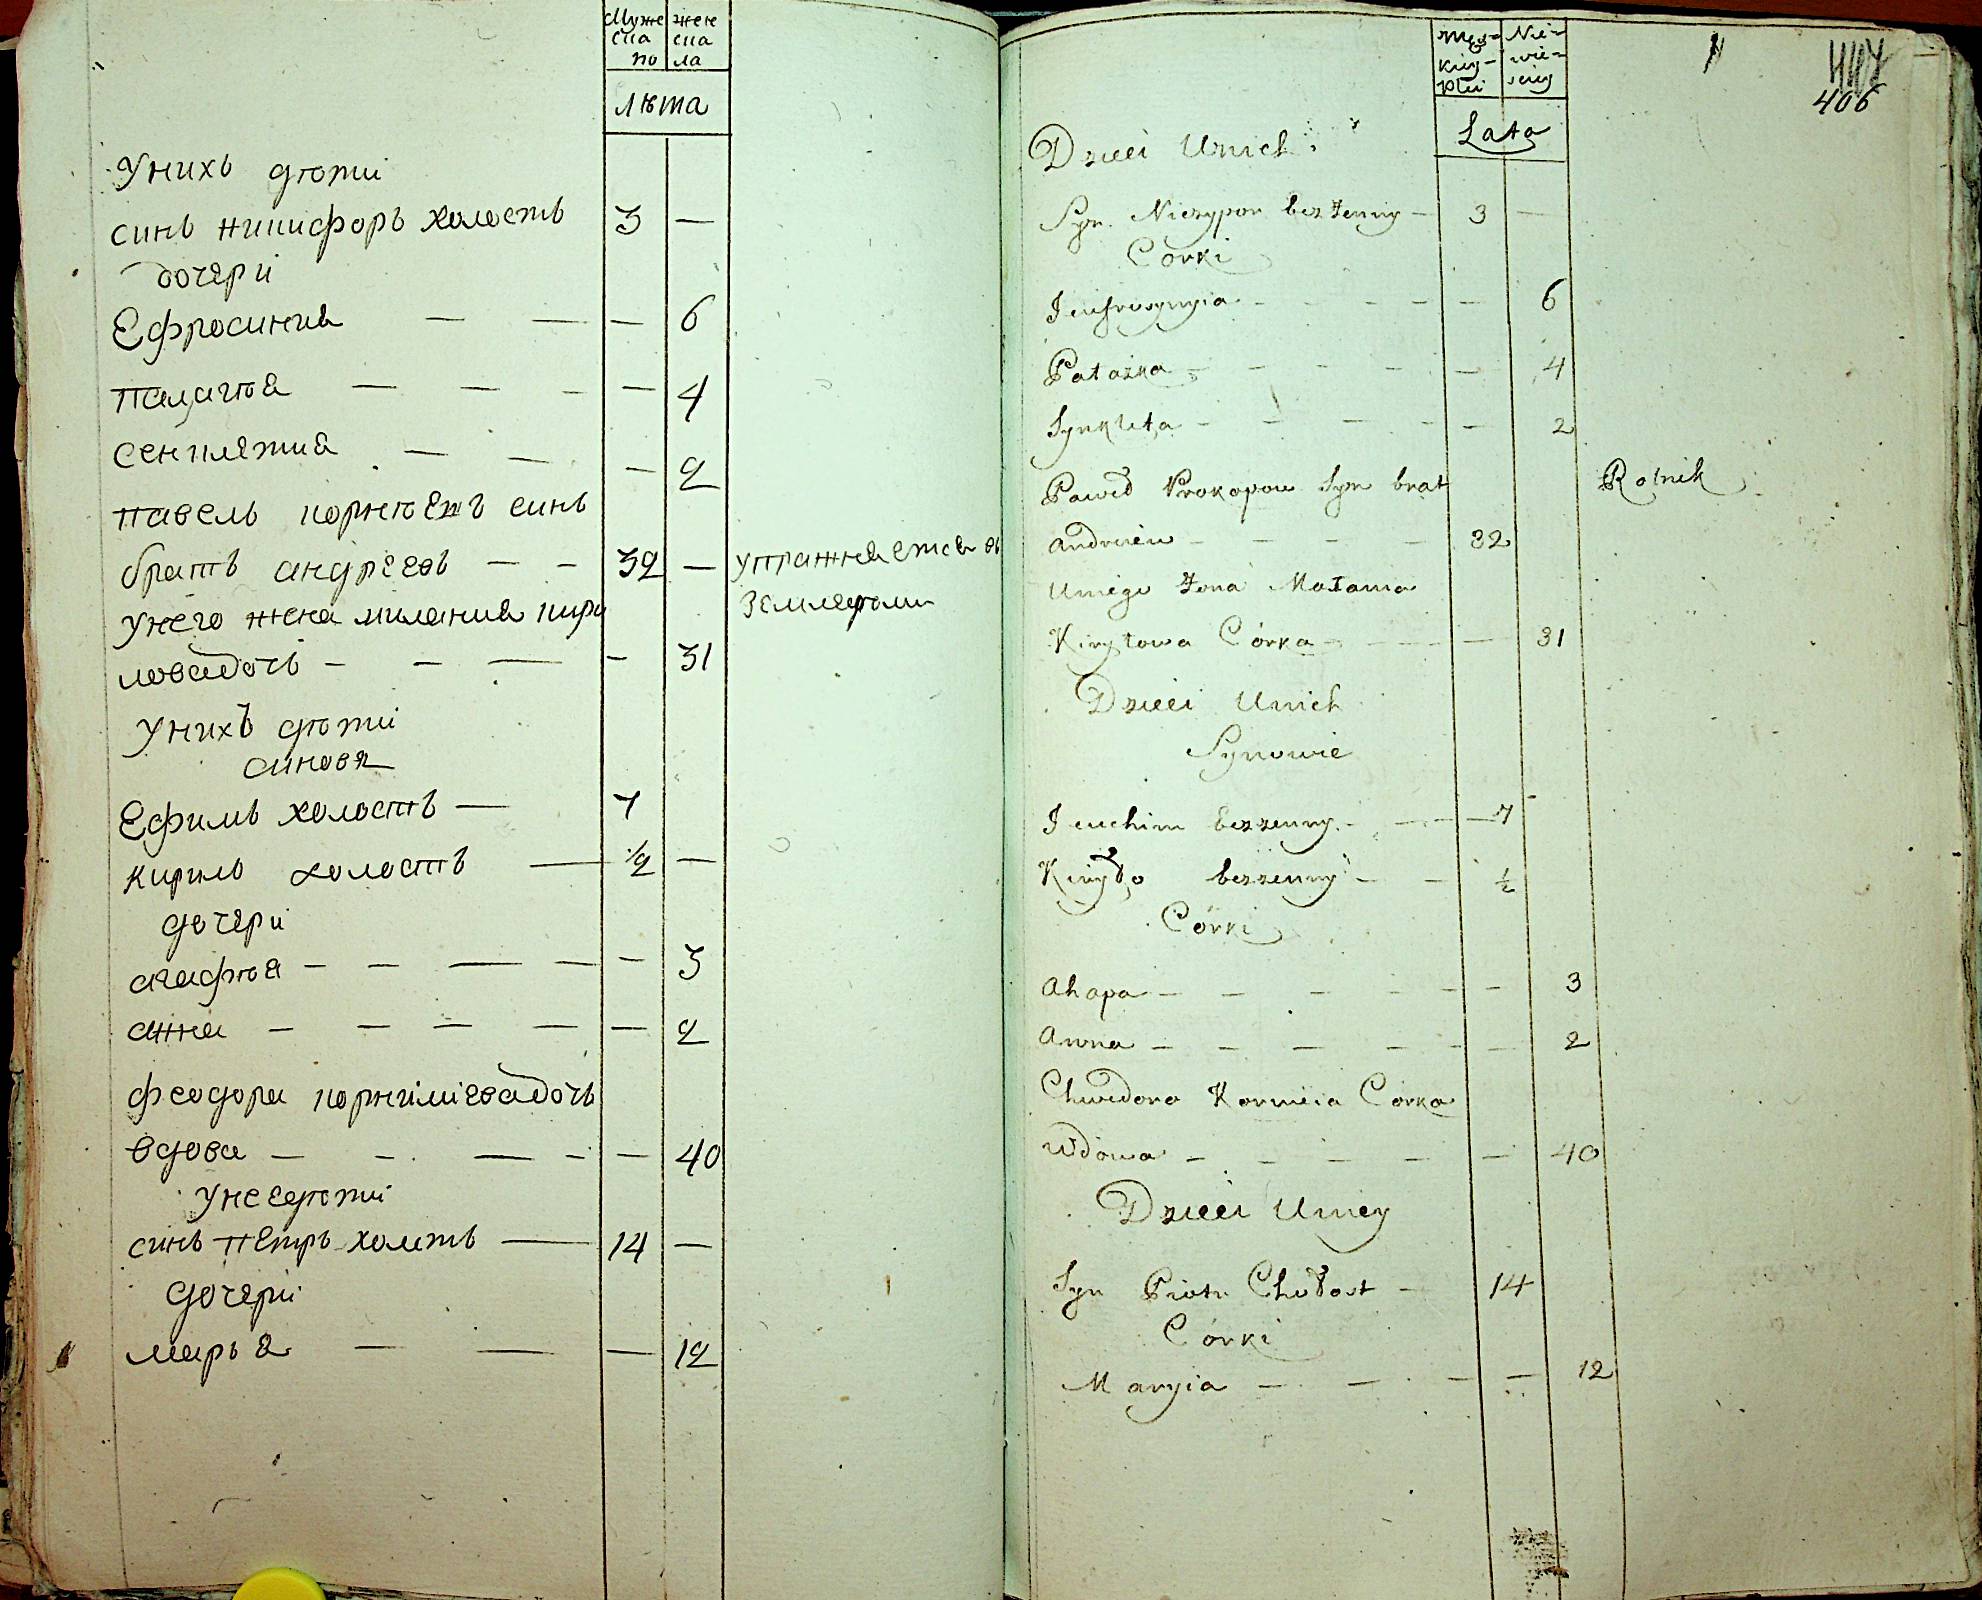 Муже жен
ска ска
по ла
лѣта
Унихъ дѣти
синъ никифоръ холостъ 3 —
дочери
Ефросиния — — — 6
палагѣя — — — — 4
сенклетия — — — 2
павелъ корнѣевъ синъ
братъ андреевъ — — 32 — упражняется въ
унего жена милания кири земледѣлии
ловадочъ — — — — 31
Унихъ дѣти
синовя
Ефимъ холостъ — 7
кирилъ холостъ — 1/2 —
дочери
агафѣя — — — — — 3
анна — — — — — 2
феодора корнилиевадочъ
вдова — — — — — 40
унеедѣти
синъ пѣтръ холостъ — 14 —
дочери
марья — — — 12
Męz- Nie-
kiey- wie-
płci sciey
447
406
Lata
Dzieci Unich
Syn Niczypor bezżenny — 3 —
Corki
Jeufrosynyia — — — — — 6
Pałażka — — — — — 4
Synkleta — — — — — 2
Paweł Prokopow Syn brat Rolnik
Andreiew — — — — 32
Uniego Żona Małania
Kiryłowa Córka — — — 31
Dzieci Unich
Synowie
Jeuchim bezzenny — — — 7
Kiryło bezzenny — — 1/2
Córki
Ahapa — — — — — — 3
Anna — — — — — — 2
Chwedora Kornieia Córka
Wdowa — — — — — 40
Dzieci Uniey
Syn Piotr Chołost — 14
Córki
Maryia — — — — 12